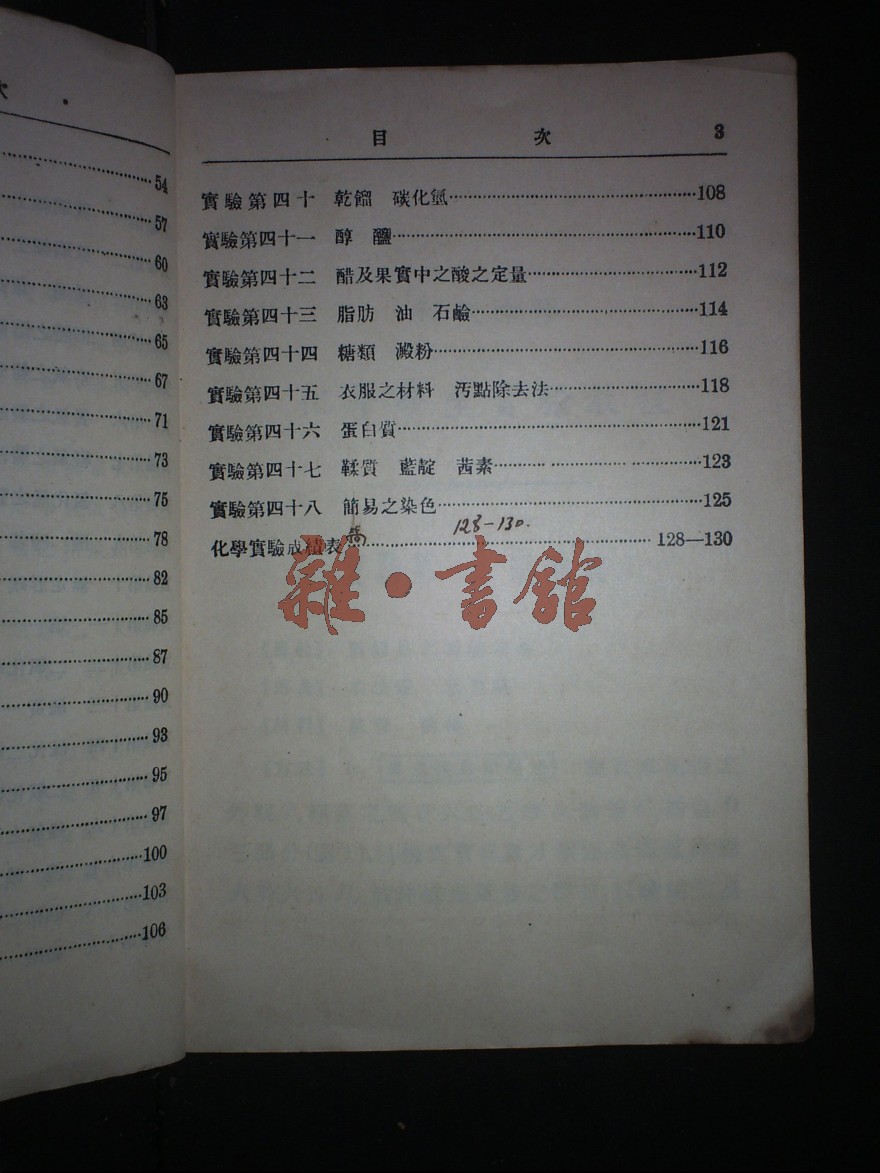 次
54
57
60
63
65
67
71
73
75
78
82
85
87
90
93
95
97
100
103
106
目 次 3
實驗第四十 乾餾 碳化氫 108
實驗第四十一 醇 醯 110
實驗第四十二 醋及果實中之酸之定量 112
實驗第四十三 脂肪 油 石鹼 114
實驗第四十四 糖類 澱粉 116
實驗第四十五 衣服之材料 汚點除去法 118
實驗第四十六 蛋白質 121
實驗第四十七 鞣質 藍靛 茜素 123
實驗第四十八 簡易之染色 125
128-130.
化學實驗成績表 128—130
雜·書館